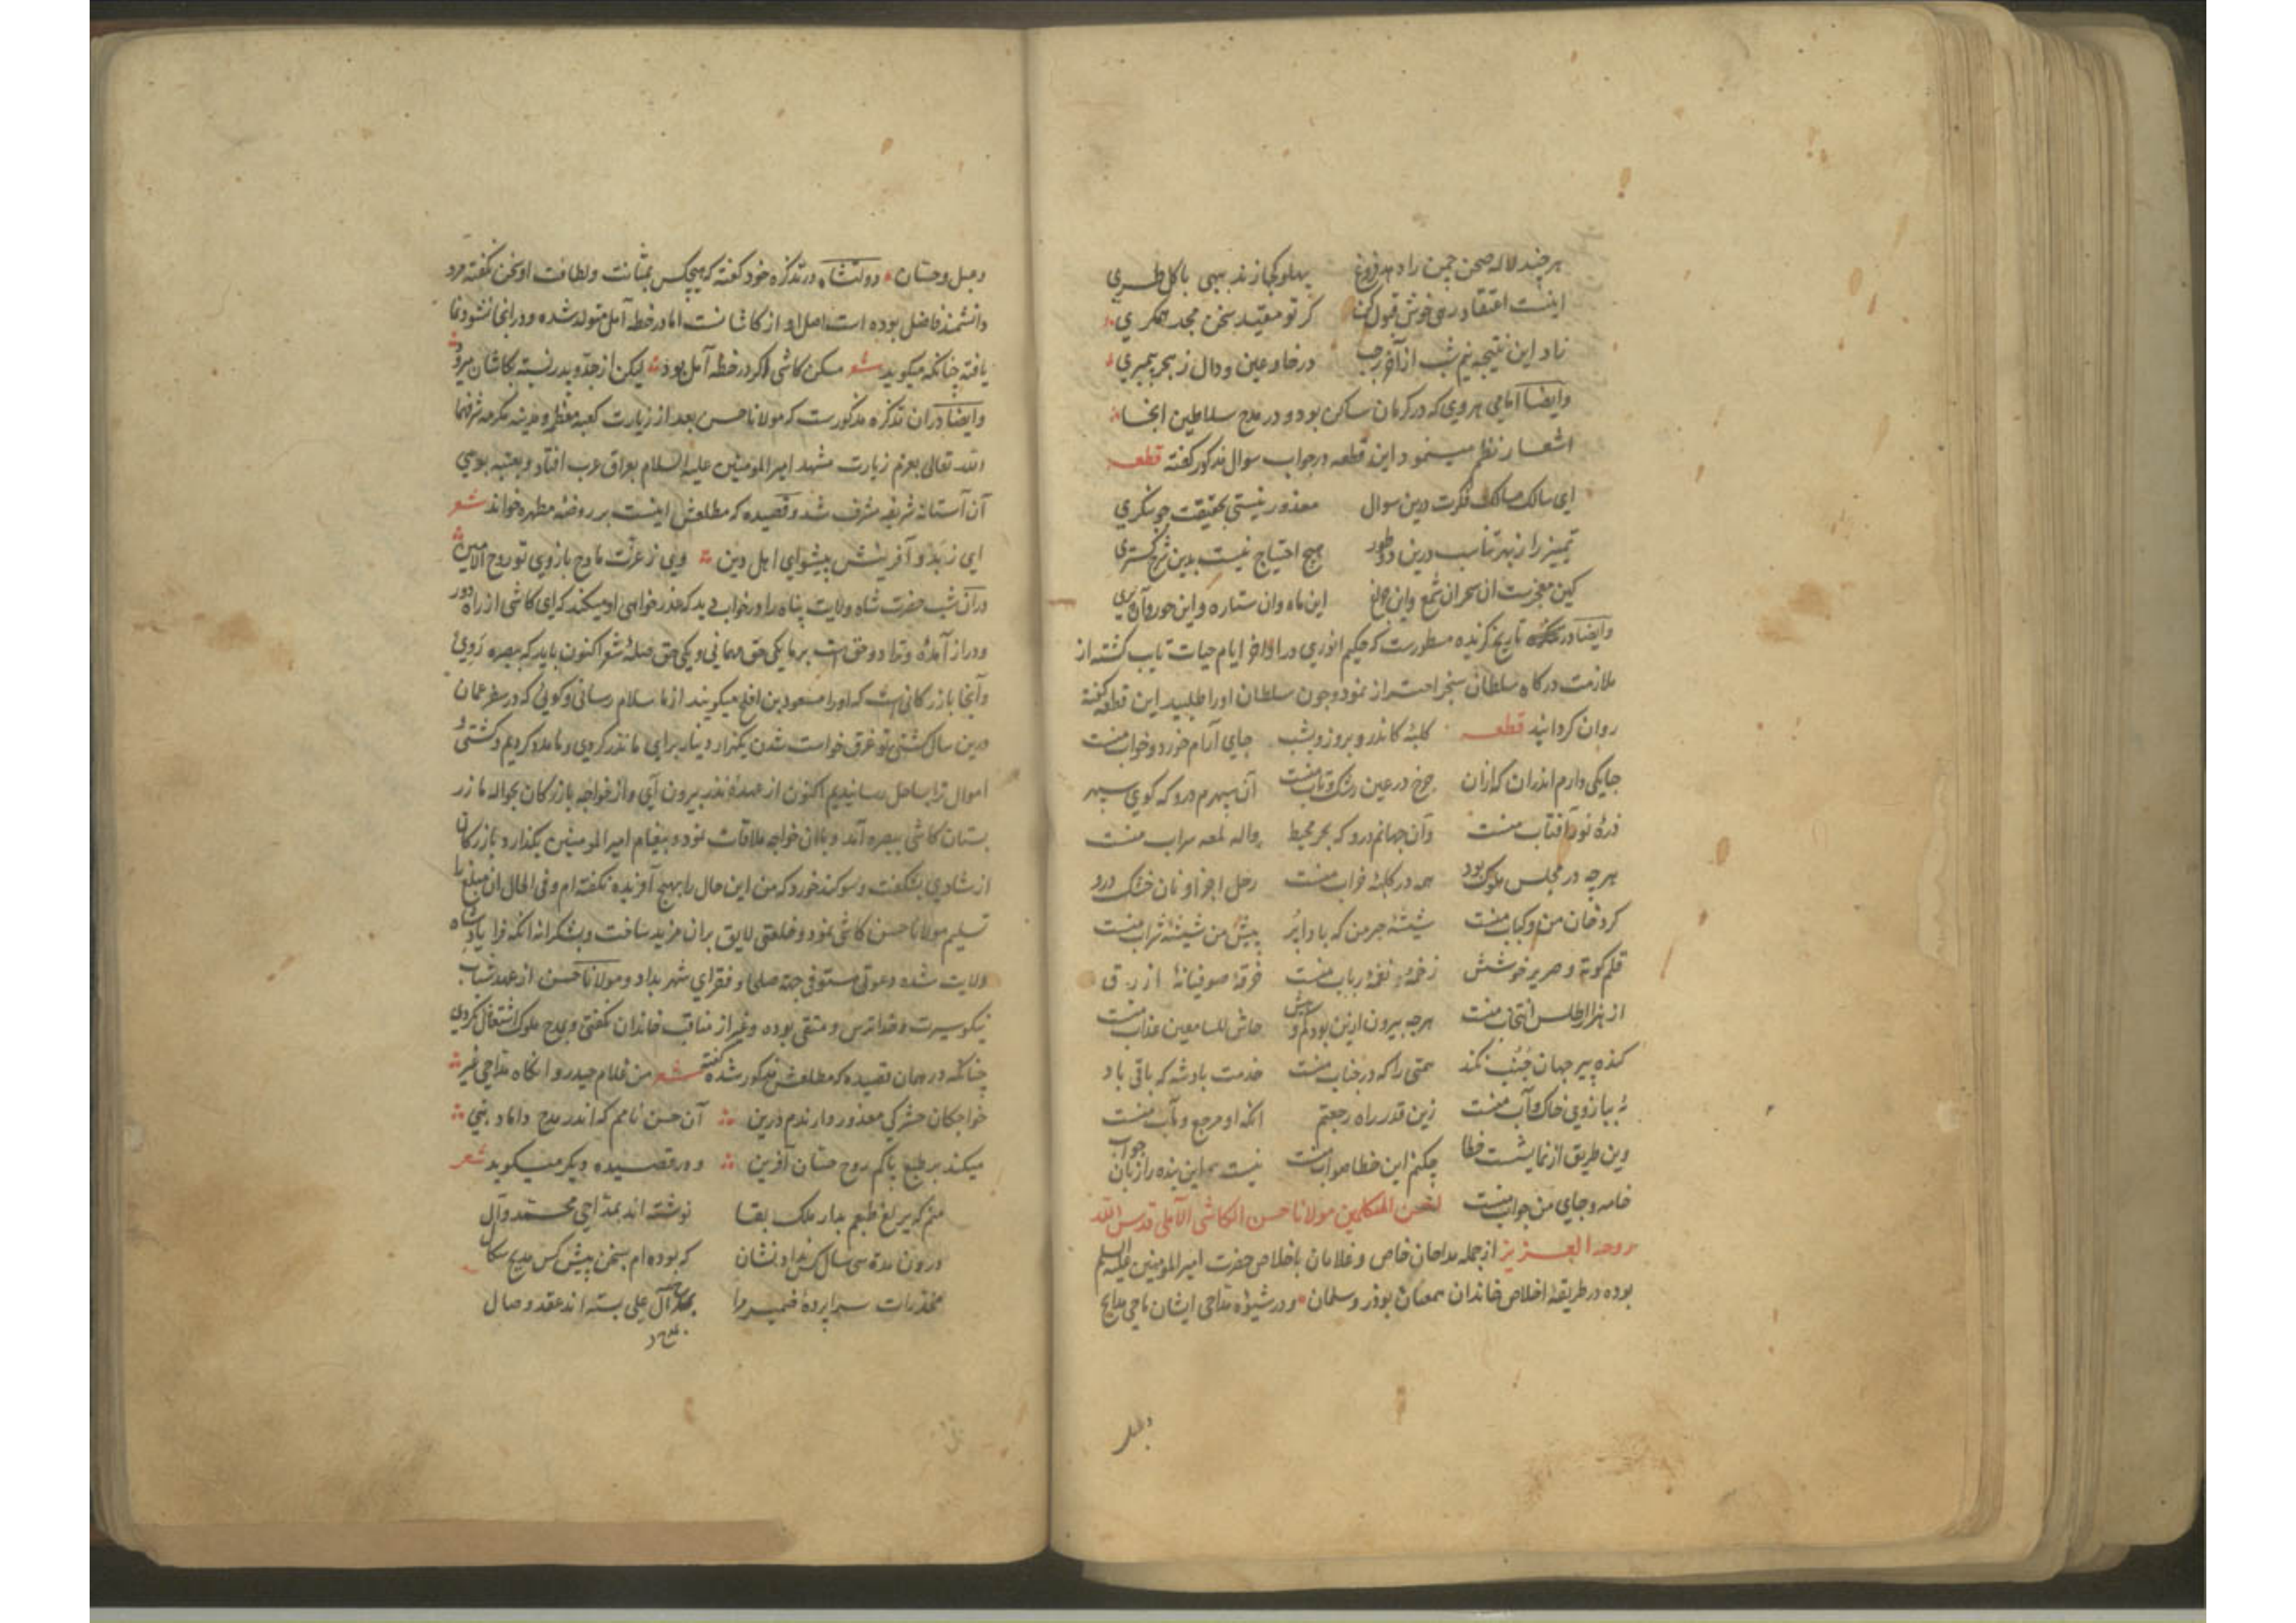 هر چند لاله صحن چمن را دهد فروغ پهلو کجا زند بهی با گل طری
اینست اعتقاد رهی خوش قبول کن گر تو مقید سخن مجد همگری
زاد این نتیجه نیم شب از آخر رجب در خا و عین و دال ز هجر پیمبری
وایضا امامی هروی که در کرمان ساکن بود و در مدح سلاطین انجا
اشعار نظم مینمود این قطعه در جواب سوال مذکور گفته قطعه
ای سالک مسالک فکرت درین سوال معذور نیستی بحقیقت چو بنگری
تمییز را ز بهر تناسب درین دو طور هیچ احتیاج نیست بدین شرح گستری
کین معجزست ان سحر ان شمع واین چراغ این ماه وان ستاره و این حور وآن پری
وایضا در تاریخ گزیده مسطورست که حکیم انوری در اواخر ایام حیات تایب گشته از
ملازمت درکاه سلطان سنجر احتراز نمود وچون سلطان اورا طلبید این قطعه گفته
روان کردانید قطعه کلبهٔ کاندرو بروز و بشب جای آرام خورد و خواب منست
جایکی دارم اندران که ازان چرخ در عین رشک و تاب منست آن سپهرم درو که گوی سپهر
ذرهٔ نور آفتاب منست وآن جهانم درو که بحر محیط واله لمعه سراب منست
هرچه در مجلس ملوک بود همه در کلبهٔ خراب منست رحل اجزا و نان خشک درو
گرد خوان من و کباب منست شیشهٔ حبر من که بادا پر پیش من شیشهٔ شراب منست
قلم کوته و صریر خوشش زخمه و نغمهٔ رباب منست خرقهٔ صوفیانهٔ ازرق
از هزار اطلس انتخاب منست هرچه بیرون ازین بود کم و بیش حاش للسامعین عذاب منست
کنده پیر جهان جنب نکند همتی را که در جناب منست خدمت پادشه که باقی باد
نه ببازوی خاک و آب منست زین قدر راه رجعتم انکه او مرجع و مآب منست
وین طریق از نمایشست خطا چکنم این خطا صواب منست نیست این بنده را زبان جواب
خامه و جای من جواب منست احسن المتکلمین مولانا حسن الکاشی الآملی قدس الله
روحه العزیز از جمله مداحان خاص و غلامان باخلاص حضرت امیرالمومنین علیه السلم
بوده در طریقهٔ اخلاص خاندان همعنان بوذر وسلمان و در شیوهٔ مداحی ایشان ماحی مدایح
دعبل
دعبل وحسان دولتشاه در تذکره خود گفته که هیچکس بمتانت ولطافت او سخن نگفته مرد
دانشمند فاضل بوده است اصل او از کاشانست اما در خطه آمل متولد شده و در انجا نشو و نما
یافته چنانکه میگوید شعر مسکن کاشی اگر در خطه آمل بود لیکن از جد و پدر نسبت بکاشان میرود
وایضا دران تذکره مذکورست که مولانا حسن بعد از زیارت کعبه معظم و مدینه مکرمه شرفهما
الله تعالی بعزم زیارت مشهد امیرالمومنین علیه السلام بعراق عرب افتاد و بعتبه بوسی
آن آستانهٔ شریفه مشرف شد و قصیده که مطلعش اینست بر روضهٔ مطهره خواند شعر
ای ز بدو آفرینش پیشوای اهل دین وی ز عزت مادح بازوی تو روح الامین
دران شب حضرت شاه ولایت پناه را در خواب دید که عذرخواهی او میکند که ای کاشی از راه دور
ودراز آمدهٔ وترا دو حق است بر ما یکی حق مهمانی و یکی حق صلهٔ شعر اکنون باید که ببصره روی
وآنجا بازرگانی است که اورا مسعود بن افلح میگویند از ما سلام رسانی و گوئی که در سفر عمان
درین سال کشتی تو غرق خواست شدن یکهزار دینار برای ما نذر کردی و ما مدد کردیم و کشتی و
اموال ترا بساحل رسانیدیم اکنون از عهدهٔ نذر بیرون آی و از خواجه بازرگان بحواله ما زر
بستان کاشی ببصره آمد و باان خواجه ملاقات نمود و پیغام امیرالمومنین بگذارد و بازرگان
از شادی بشکفت و سوگند خورد که من این حال را بهیچ آفریده نگفته ام و فی الحال ان مبلغ را
تسلیم مولانا حسن کاشی نمود و خلعتی لایق بران مزید ساخت و بشکرانه انکه فرا یاد شاه
ولایت شده دعوتی مستوفی جهة صلحا و فقرای شهر بداد و مولانا حسن از عهد شباب
نیکوسیرت و خداترس و متقی بوده و غیر از مناقب خاندان نگفتی و بمدح ملوک اشتغال نکردی
چنانکه در همان قصیده که مطلعش مذکور شده گفته شعر من غلام حیدر و انگاه مداحی غیر
خواجکان حشرکی معذور دارندم درین آن حسن نامم که اندر مدح داماد نبی
میکند بر طبع پاکم روح حسان آفرین و در قصیده دیگر میگوید شعر
منم که یرلغ طبعم بدار ملک بقا نوشته اند بمداحی محمد وآل
درون مدة سی سال کس نداد نشان که بوده ام بسخن پیش کس مدیح سگال
مخدرات سراپردهٔ ضمیر مرا بمهر آل علی بسته اند عقد وصال